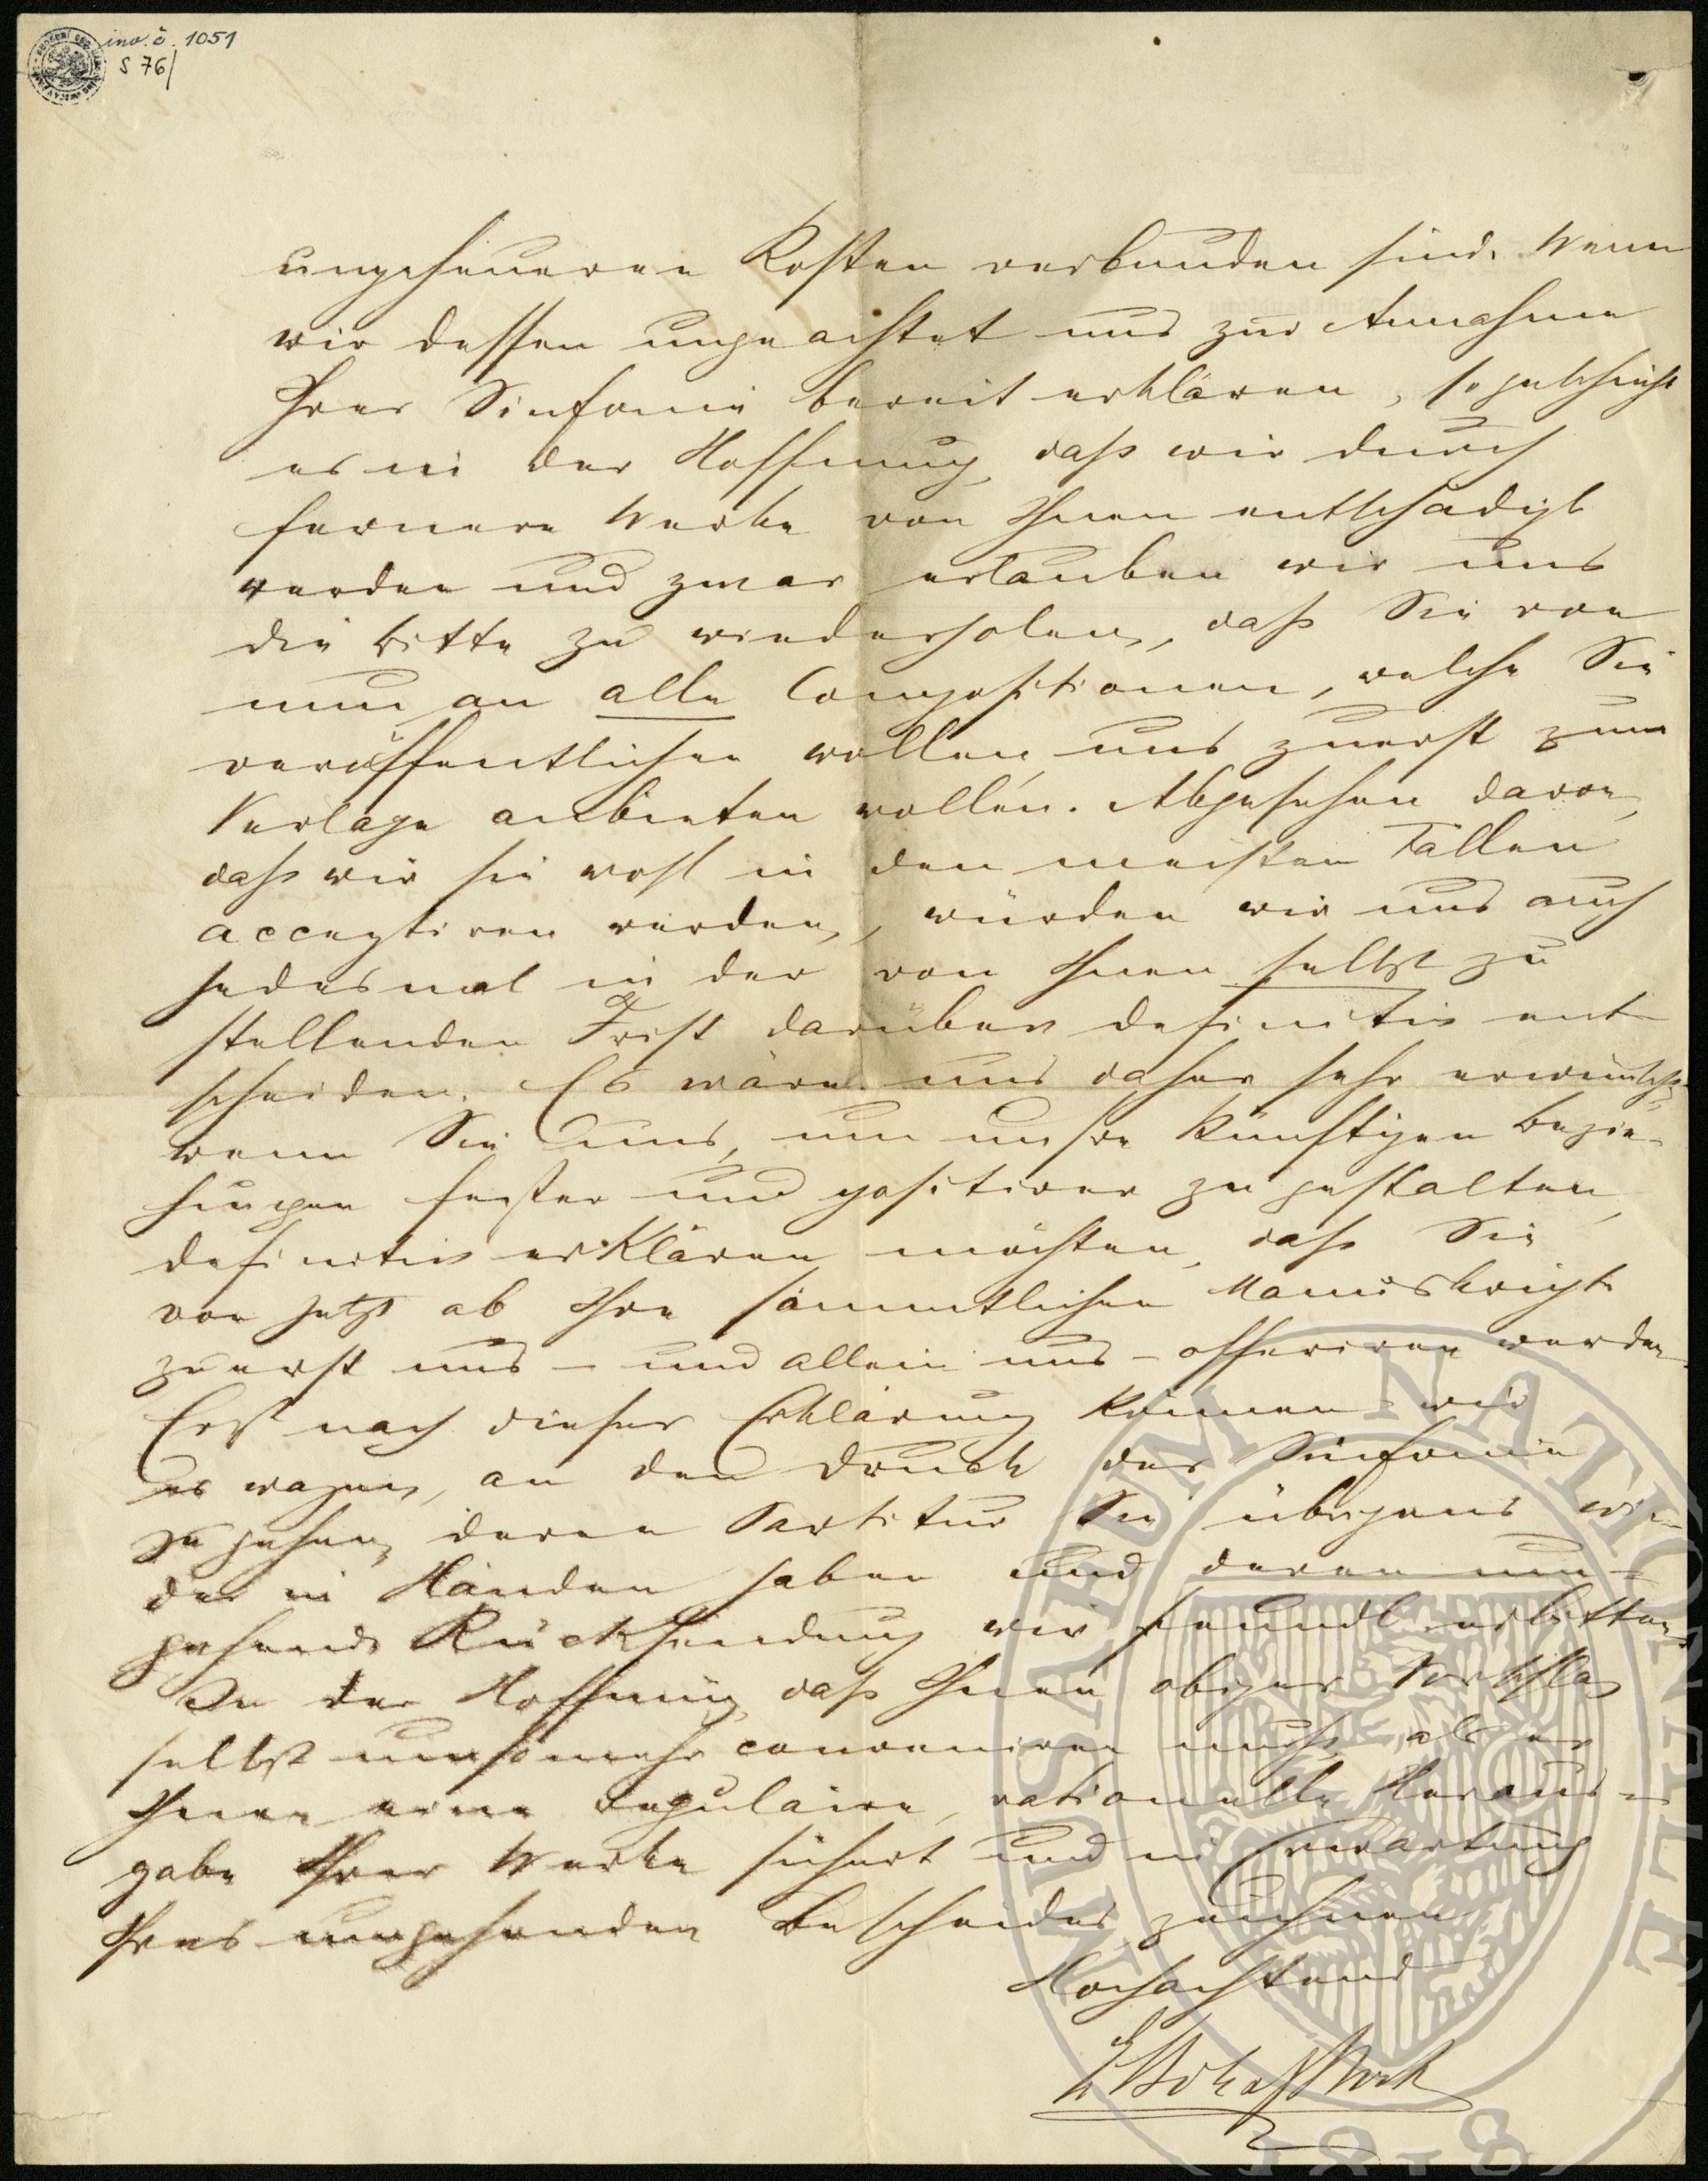 inv. č. 1051
S 76/
ungeheueren Kosten verbunden sind. Wenn
wir dessen ungeachtet uns zur Annahme
Ihrer Sinfonie bereit erklären, so geschieht
es in der Hoffnung, daß wir durch
fernere Werke von Ihnen entschädigt
werden und zwar erlauben wir uns
die Bitte zu wiederholen, daß Sie von
nun an alle Compositionen, welche Sie
veröffentlichen wollen, uns zuerst zum
Verlage anbieten wollen. Abgesehen davon,
daß wir sie wohl in den meisten Fällen
acceptiren werden, würden wir uns auch
jedesmal in der von Ihnen selbst zu
stellenden Frist darüber definitiv ent-
scheiden. Es wäre uns daher sehr erwünscht,
wenn Sie uns, um unsre künftigen Bezie-
hungen fester und positiver zu gestalten,
definitiv erklären möchten, daß Sie
von jetzt ab Ihre sämmtlichen Manuskripte
zuerst uns – und allein uns – offeriren werden.
Erst nach dieser Erklärung können wir
es wagen, an den Druck der Sinfonie
zu gehen, deren Partitur Sie übrigens wie-
der in Händen haben und deren um-
gehende Rücksendung wir freundl. erbitten.
In der Hoffnung, daß Ihnen obiger Vorschlag
selbst umsomehr conveniren muß, als er
Ihnen eine regulaire, rationelle Heraus-
gabe Ihrer Werke sichert und in Erwartung
Ihres umgehenden Bescheides zeichnen
Hochachtend
Ed Bote & G Bock
MUSAEUM NATIONALE
1818